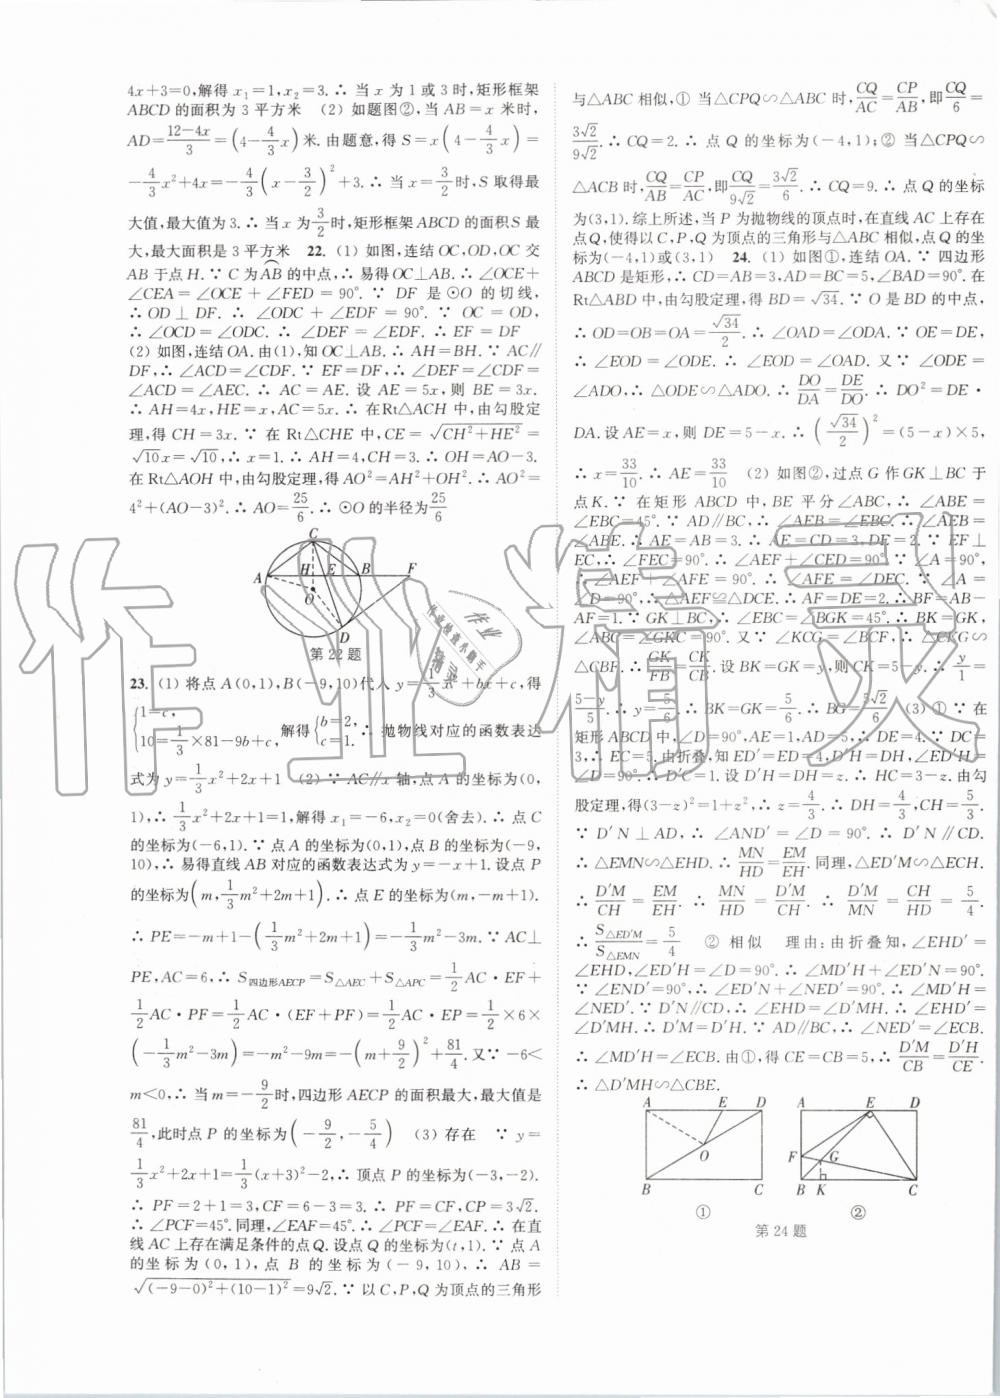 4x+3=0,解得 x₁=1,x₂=3.∴ 当 x 为 1 或 3 时,矩形框架
ABCD 的面积为 3 平方米 (2) 如题图②,当 AB=x 米时,
AD=(12-4x)/3=(4-4/3x)米.由题意,得 S=x(4-4/3x)=
-4/3x²+4x=-4/3(x-3/2)²+3.∴ 当 x=3/2时,S 取得最
大值,最大值为 3.∴ 当 x 为3/2时,矩形框架 ABCD 的面积 S 最
大,最大面积是 3 平方米 22. (1) 如图,连结 OC,OD,OC 交
AB 于点 H.∵ C 为AB⌒的中点,∴ 易得 OC⊥AB.∴ ∠OCE+
∠CEA=∠OCE+∠FED=90°.∵ DF 是⊙O 的切线,
∴ OD⊥DF.∴ ∠ODC+∠EDF=90°.∵ OC=OD,
∴ ∠OCD=∠ODC.∴ ∠DEF=∠EDF.∴ EF=DF
(2) 如图,连结 OA.由(1),知 OC⊥AB.∴ AH=BH.∵ AC∥
DF,∴ ∠ACD=∠CDF.∵ EF=DF,∴ ∠DEF=∠CDF=
∠ACD=∠AEC.∴ AC=AE.设 AE=5x,则 BE=3x.
∴ AH=4x,HE=x,AC=5x.∴ 在Rt△ACH 中,由勾股定
理,得 CH=3x.∴ 在 Rt△CHE 中,CE=√(CH²+HE²)=
√10x=√10.∴ x=1.∴ AH=4,CH=3.∴ OH=AO-3.
在Rt△AOH 中,由勾股定理,得 AO²=AH²+OH².∴ AO²=
4²+(AO-3)².∴ AO=25/6.∴ ⊙O 的半径为25/6
C
A H E B F
O
D
第 22 题
23. (1) 将点 A(0,1),B(-9,10)代入 y=1/3x²+bx+c,得
{1=c, 10=1/3×81-9b+c, 解得{b=2, c=1.∴ 抛物线对应的函数表达
式为 y=1/3x²+2x+1 (2) ∵ AC∥x 轴,点 A 的坐标为(0,
1),∴ 1/3x²+2x+1=1,解得 x₁=-6,x₂=0(舍去).∴ 点 C
的坐标为(-6,1).∵ 点 A 的坐标为(0,1),点 B 的坐标为(-9,
10),∴ 易得直线 AB 对应的函数表达式为 y=-x+1.设点 P
的坐标为(m,1/3m²+2m+1).∴ 点 E 的坐标为(m,-m+1).
∴ PE=-m+1-(1/3m²+2m+1)=-1/3m²-3m.∵ AC⊥
PE,AC=6,∴ S四边形AECP=S△AEC+S△APC=1/2AC·EF+
1/2AC·PF=1/2AC·(EF+PF)=1/2AC·EP=1/2×6×
(-1/3m²-3m)=-m²-9m=-(m+9/2)²+81/4.又∵ -6<
m<0,∴ 当 m=-9/2时,四边形 AECP 的面积最大,最大值是
81/4,此时点 P 的坐标为(-9/2,-5/4) (3) 存在 ∵ y=
1/3x²+2x+1=1/3(x+3)²-2,∴ 顶点 P 的坐标为(-3,-2).
∴ PF=2+1=3,CF=6-3=3.∴ PF=CF,CP=3√2.
∴ ∠PCF=45°.同理,∠EAF=45°.∴ ∠PCF=∠EAF.∴ 在直
线 AC 上存在满足条件的点 Q.设点 Q 的坐标为(t,1).∵ 点 A
的坐标为(0,1),点 B 的坐标为(-9,10),∴ AB=
√((-9-0)²+(10-1)²)=9√2.∵ 以 C,P,Q 为顶点的三角形
与△ABC 相似,① 当△CPQ∽△ABC 时,CQ/AC=CP/AB,即CQ/6=
3√2/9√2.∴ CQ=2.∴ 点 Q 的坐标为(-4,1);② 当△CPQ∽
△ACB 时,CQ/AB=CP/AC,即CQ/9√2=3√2/6.∴ CQ=9.∴ 点 Q 的坐标
为(3,1).综上所述,当 P 为抛物线的顶点时,在直线 AC 上存在
点 Q,使得以 C,P,Q 为顶点的三角形与△ABC 相似,点 Q 的坐
标为(-4,1)或(3,1) 24. (1) 如图①,连结 OA.∵ 四边形
ABCD 是矩形,∴ CD=AB=3,AD=BC=5,∠BAD=90°.在
Rt△ABD 中,由勾股定理,得 BD=√34.∵ O 是 BD 的中点,
∴ OD=OB=OA=√34/2.∴ ∠OAD=∠ODA.∵ OE=DE,
∴ ∠EOD=∠ODE.∴ ∠EOD=∠OAD.又∵ ∠ODE=
∠ADO,∴ △ODE∽△ADO.∴ DO/DA=DE/DO.∴ DO²=DE·
DA.设 AE=x,则 DE=5-x.∴ (√34/2)²=(5-x)×5,
∴ x=33/10.∴ AE=33/10 (2) 如图②,过点 G 作 GK⊥BC 于
点 K.∵ 在矩形 ABCD 中,BE 平分∠ABC,∴ ∠ABE=
∠EBC=45°.∵ AD∥BC,∴ ∠AEB=∠EBC.∴ ∠AEB=
∠ABE.∴ AE=AB=3.∴ AE=CD=3,DE=2.∵ EF⊥
EC,∴ ∠FEC=90°.∴ ∠AEF+∠CED=90°.∵ ∠A=
90°,∴ ∠AEF+∠AFE=90°.∴ ∠AFE=∠DEC.∵ ∠A=
∠D=90°,∴ △AEF≌△DCE.∴ AF=DE=2.∴ BF=AB-
AF=1.∵ GK⊥BC,∴ ∠EBC=∠BGK=45°.∴ BK=GK,
∠ABC=∠GKC=90°.又∵ ∠KCG=∠BCF,∴ △CKG∽
△CBF.∴ GK/FB=CK/CB.设 BK=GK=y,则 CK=5-y.∴ y/1=
(5-y)/5.∴ y=5/6.∴ BK=GK=5/6.∴ BG=5√2/6 (3) ① ∵ 在
矩形 ABCD 中,∠D=90°,AE=1,AD=5,∴ DE=4.∵ DC=
3,∴ EC=5.由折叠知,ED′=ED=4,D′H=DH,∠ED′H=
∠D=90°.∴ D′C=1.设 D′H=DH=z.∴ HC=3-z.由勾
股定理,得(3-z)²=1+z²,∴ z=4/3.∴ DH=4/3,CH=5/3.
∵ D′N⊥AD,∴ ∠AND′=∠D=90°.∴ D′N∥CD.
∴ △EMN∽△EHD.∴ MN/HD=EM/EH.同理,△ED′M∽△ECH.
∴ D′M/CH=EM/EH.∴ MN/HD=D′M/CH.∴ D′M/MN=CH/HD=5/4.
∴ S△ED′M/S△EMN=5/4 ② 相似 理由:由折叠知,∠EHD′=
∠EHD,∠ED′H=∠D=90°.∴ ∠MD′H+∠ED′N=90°.
∵ ∠END′=90°,∴ ∠ED′N+∠NED′=90°.∴ ∠MD′H=
∠NED′.∵ D′N∥CD,∴ ∠EHD=∠D′MH.∴ ∠EHD′=
∠D′MH.∴ D′M=D′H.∵ AD∥BC,∴ ∠NED′=∠ECB.
∴ ∠MD′H=∠ECB.由①,得 CE=CB=5,∴ D′M/CB=D′H/CE.
∴ △D′MH∽△CBE.
A E D
O
B C
①
A E D
F G
B K C
②
第 24 题
作业精灵